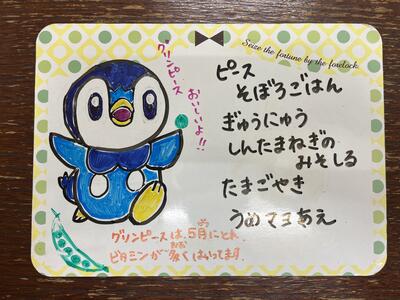 Seize the fortune by the forelock.
グリンピース
おいしいよ!!
ピース
そぼろごはん
ぎゅうにゅう
しんたまねぎの
みそしる
たまごやき
うめマヨあえ
グリンピースは、5月にとれ、
ビタミンが多くはいってます。